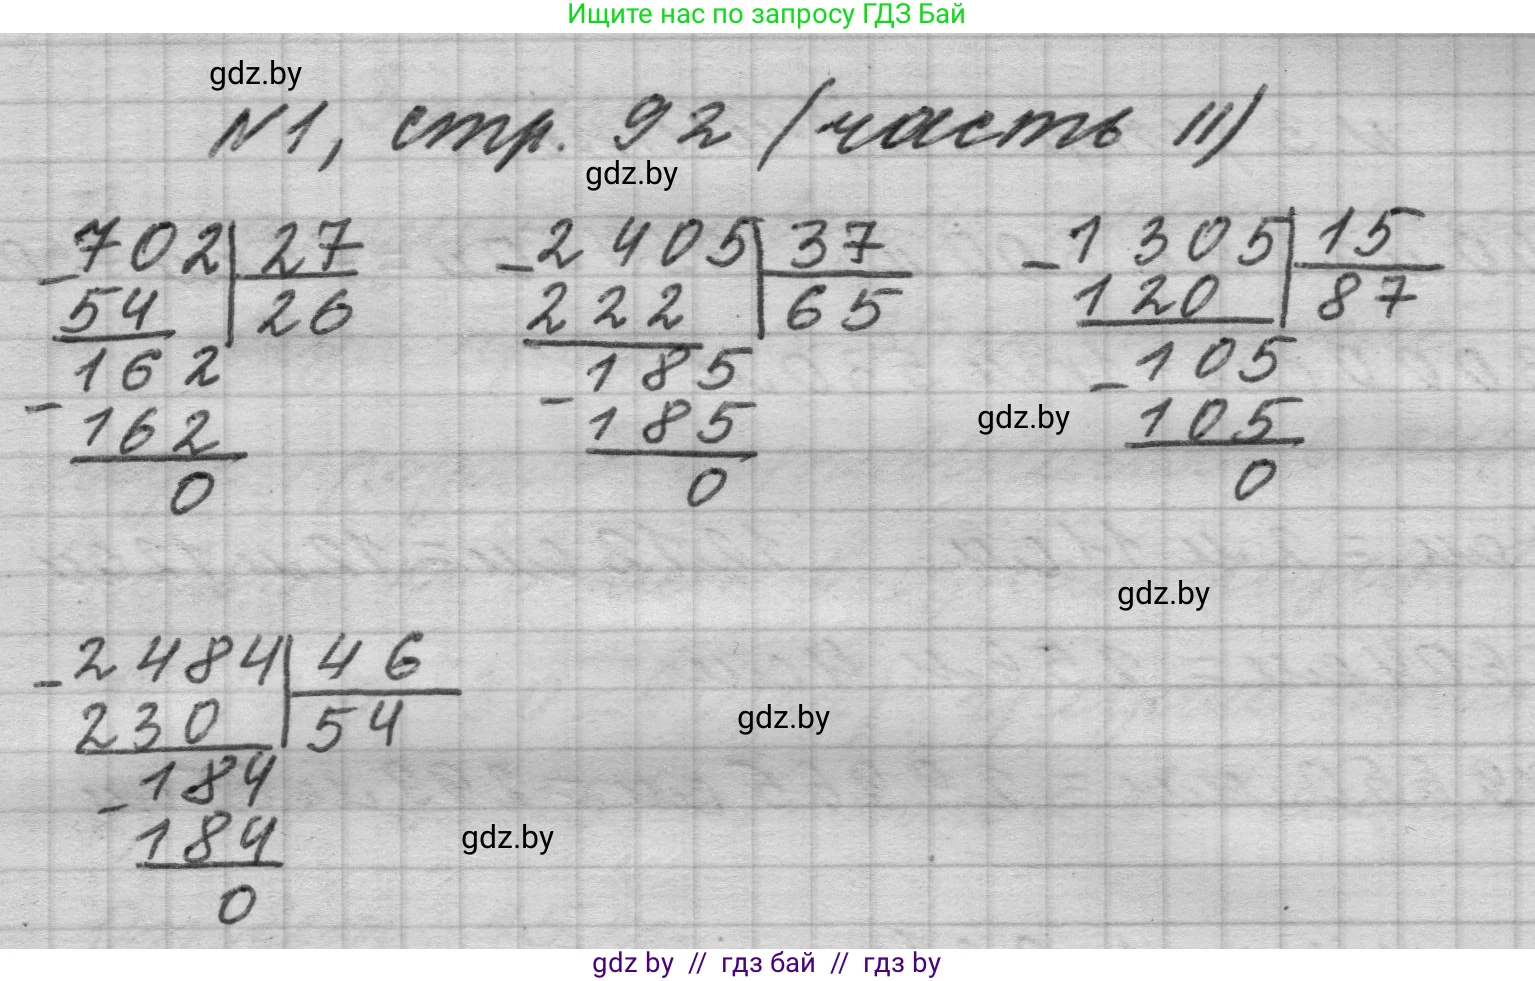 Ищите нас по запросу ГДЗ Бай
gdz.by
№1, стр. 92 (часть II)
gdz.by
702 27
- 54 26
162
- 162
0
2405 37
- 222 65
185
- 185
0
1305 15
- 120 87
105
- 105
0
gdz.by
gdz.by
2484 46
- 230 54
184
- 184
0
gdz.by
gdz.by
gdz by // гдз бай // гдз by